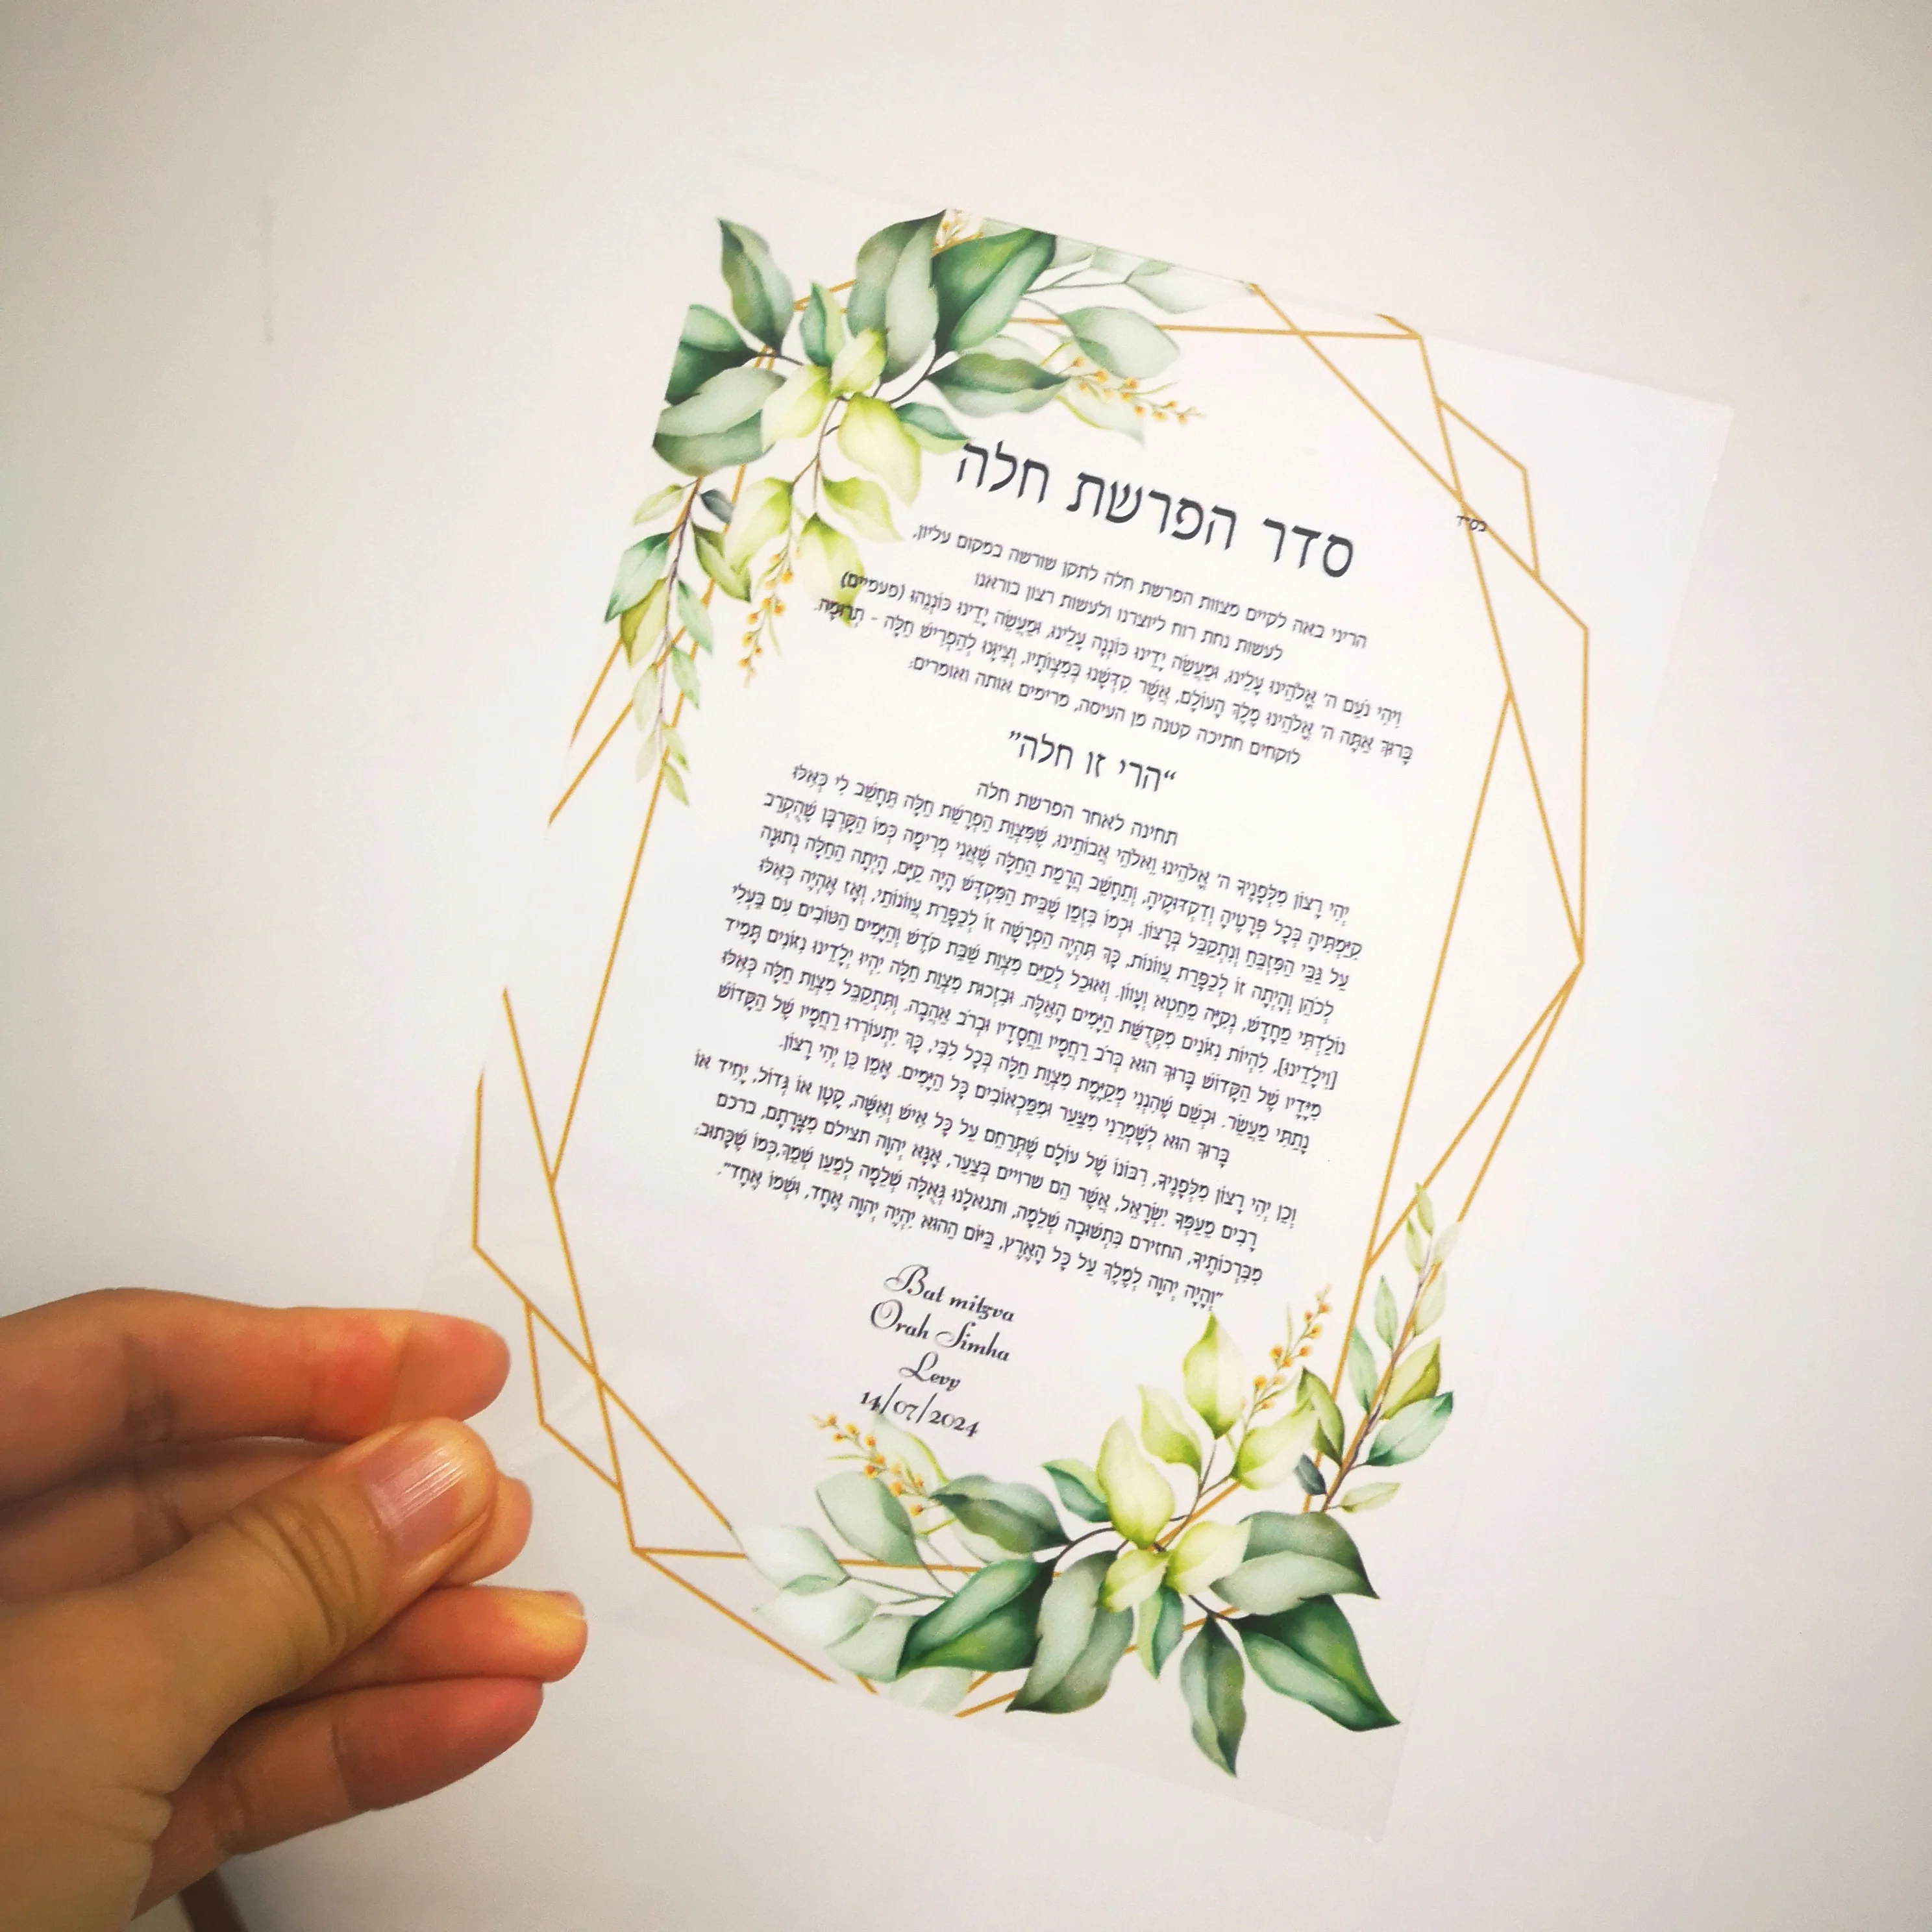 בס״ד
סדר הפרשת חלה
הריני באה לקיים מצוות הפרשת חלה לתקן שורשה במקום עליון,
לעשות נחת רוח ליוצרנו ולעשות רצון בוראנו
וִיהִי נֹעַם ה' אֱלֹהֵינוּ עָלֵינוּ, וּמַעֲשֵׂה יָדֵינוּ כּוֹנְנָה עָלֵינוּ, וּמַעֲשֵׂה יָדֵינוּ כּוֹנְנֵהוּ (פעמיים)
בָּרוּךְ אַתָּה ה' אֱלֹהֵינוּ מֶלֶךְ הָעוֹלָם, אֲשֶׁר קִדְּשָׁנוּ בְּמִצְוֹתָיו, וְצִוָּנוּ לְהַפְרִישׁ חַלָּה - תְּרוּמָה.
לוקחים חתיכה קטנה מן העיסה, מרימים אותה ואומרים:
"הרי זו חלה"
תחינה לאחר הפרשת חלה
יְהִי רָצוֹן מִלְּפָנֶיךָ ה' אֱלֹהֵינוּ וֵאלֹהֵי אֲבוֹתֵינוּ, שֶׁמִּצְוַת הַפְרָשַׁת חַלָּה תֵּחָשֵׁב לִי כְּאִלּוּ
קִיַּמְתִּיהָ בְּכָל פְּרָטֶיהָ וְדִקְדּוּקֶיהָ, וְתֵחָשֵׁב הֲרָמַת הַחַלָּה שֶׁאֲנִי מְרִימָה כְּמוֹ הַקָּרְבָּן שֶׁהֻקְרַב
עַל גַּבֵּי הַמִּזְבֵּחַ וְנִתְקַבֵּל בְּרָצוֹן. וּכְמוֹ בִּזְמַן שֶׁבֵּית הַמִּקְדָּשׁ הָיָה קַיָּם, הָיְתָה הַחַלָּה נְתוּנָה
לַכֹּהֵן וְהָיְתָה זוֹ לְכַפָּרַת עֲווֹנוֹת, כָּךְ תִּהְיֶה הַפְרָשָׁה זוֹ לְכַפָּרַת עֲווֹנוֹתַי, וְאָז אֶהְיֶה כְּאִלּוּ
נוֹלַדְתִּי מֵחָדָשׁ, נְקִיָּה מֵחֵטְא וְעָווֹן. וְאוּכַל לְקַיֵּם מִצְוַת שַׁבַּת קֹדֶשׁ וְהַיָּמִים הַטּוֹבִים עִם בַּעְלִי
[וִילָדֵינוּ], לִהְיוֹת נִזּוֹנִים מִקְּדֻשַּׁת הַיָּמִים הָאֵלֶּה. וּבִזְכוּת מִצְוַת חַלָּה יִהְיוּ יְלָדֵינוּ נִזּוֹנִים תָּמִיד
מִיָּדָיו שֶׁל הַקָּדוֹשׁ בָּרוּךְ הוּא בְּרֹב רַחֲמָיו וַחֲסָדָיו וּבְרֹב אַהֲבָה. וְתִתְקַבֵּל מִצְוַת חַלָּה כְּאִלּוּ
נָתַתִּי מַעֲשֵׂר. וּכְשֵׁם שֶׁהִנְנִי מְקַיֶּמֶת מִצְוַת חַלָּה בְּכָל לִבִּי, כָּךְ יִתְעוֹרְרוּ רַחֲמָיו שֶׁל הַקָּדוֹשׁ
בָּרוּךְ הוּא לְשָׁמְרֵנִי מִצַּעַר וּמִמַּכְאוֹבִים כָּל הַיָּמִים. אָמֵן כֵּן יְהִי רָצוֹן.
וְכֵן יְהִי רָצוֹן מִלְּפָנֶיךָ, רִבּוֹנוֹ שֶׁל עוֹלָם שֶׁתְּרַחֵם עַל כָּל אִישׁ וְאִשָּׁה, קָטָן אוֹ גָּדוֹל, יָחִיד אוֹ
רַבִּים מֵעַמְּךָ יִשְׂרָאֵל, אֲשֶׁר הֵם שרויים בְּצַעַר, אָנָּא יְהוָה תצילם מִצָּרָתָם, ברכם
מִבִּרְכוֹתֶיךָ, החזירם בִּתְשׁוּבָה שְׁלֵמָה, ותגאלנו גְּאֻלָּה שְׁלֵמָה לְמַעַן שְׁמֶךָ,כְּמוֹ שֶׁכָּתוּב:
"וְהָיָה יְהוָה לְמֶלֶךְ עַל כָּל הָאָרֶץ, בַּיּוֹם הַהוּא יִהְיֶה יְהוָה אֶחָד, וּשְׁמוֹ אֶחָד".
Bat mitzva
Orah Simha
Levy
14/07/2024